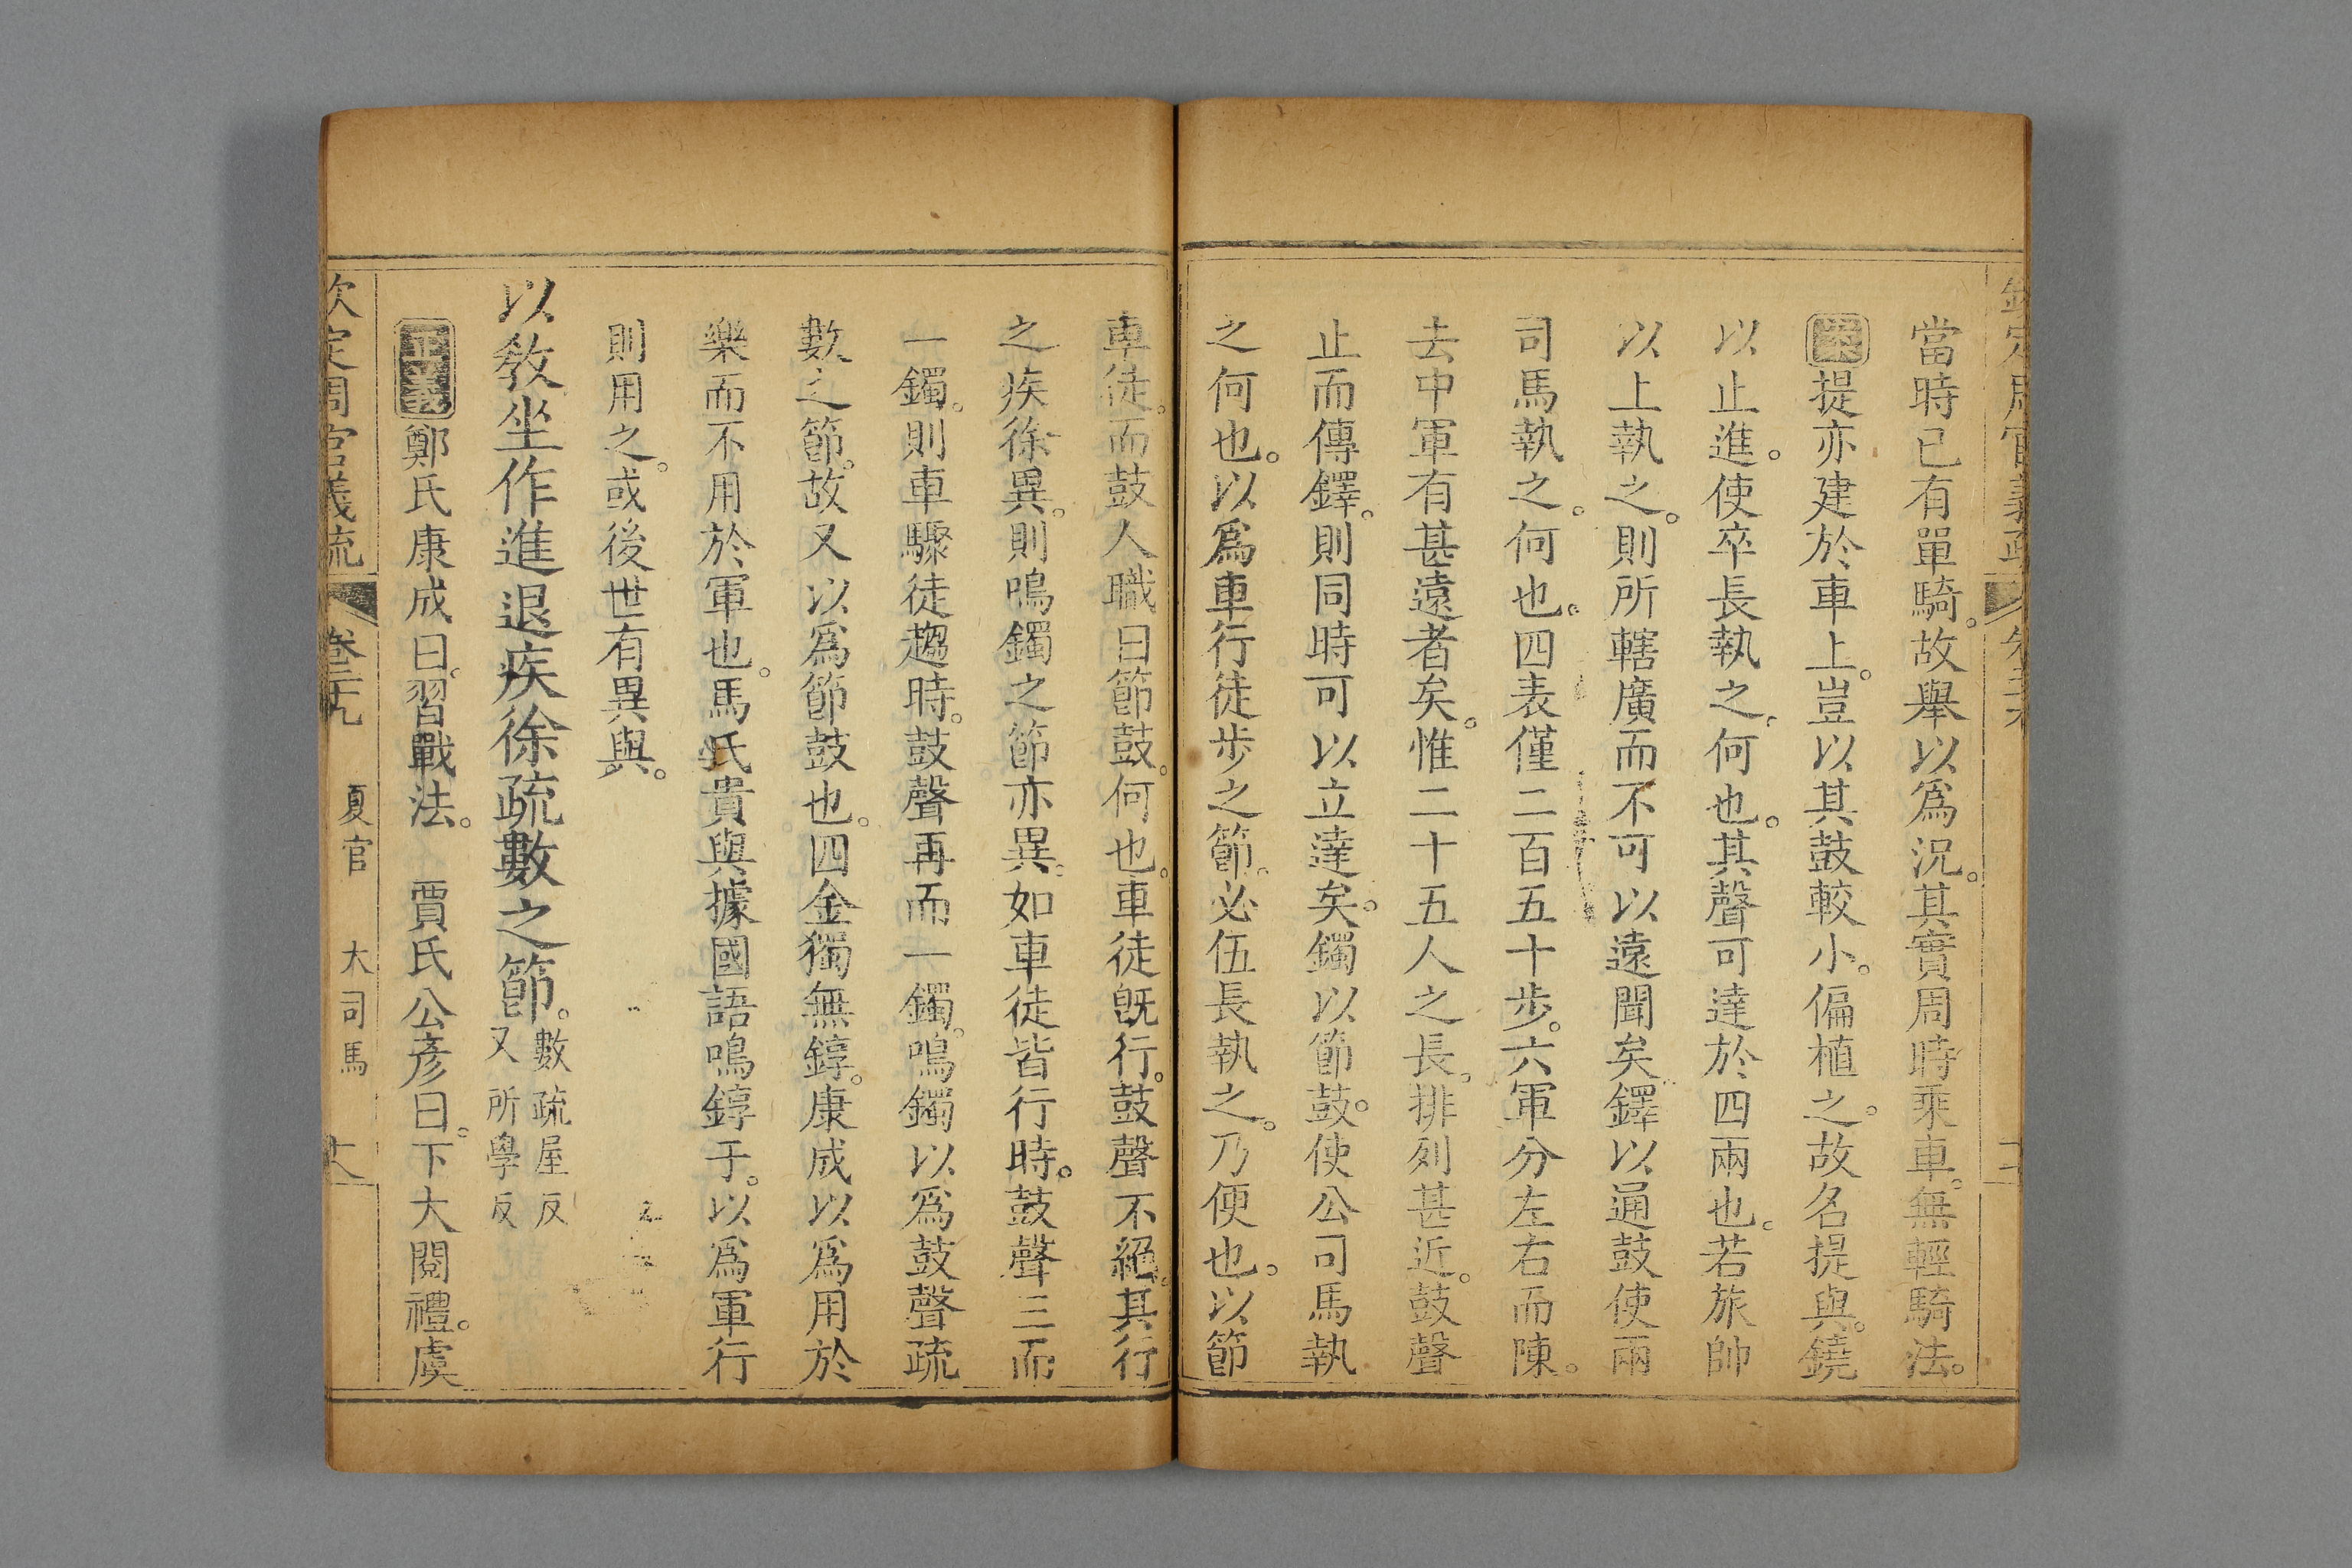 當時已有單騎。故舉以爲況。其實周時乘車。無輕騎法。
案提亦建於車上。豈以其鼓較小。偏植之。故名提與。鐃
以止進。使卒長執之。何也。其聲可達於四兩也。若旅帥
以上執之。則所轄廣而不可以遠聞矣。鐸以通鼓使兩
司馬執之。何也。四表僅二百五十步。六軍分左右而陳。
去中軍有甚遠者矣。惟二十五人之長。排列甚近。鼓聲
止而傳鐸。則同時可以立達矣。鐲以節鼓。使公司馬執
之何也。以爲車行徒步之節。必伍長執之。乃便也。以節
車徒。而鼓人職曰節鼓。何也。車徒旣行。鼓聲不絕。其行
之疾徐異。則鳴鐲之節亦異。如車徒皆行時。鼓聲三而
一鐲。則車驟徒趨時。鼓聲再而一鐲。鳴鐲以爲鼓聲疏
數之節。故又以爲節鼓也。四金獨無錞。康成以爲用於
樂而不用於軍也。馬氏貴與據國語鳴錞于。以爲軍行
則用之。或後世有異與。
以敎坐作進退疾徐疏數之節。數疏屋反
又所學反
正義鄭氏康成曰。習戰法。 賈氏公彥曰。下大閱禮。虞
欽定周官義疏 卷二十九 夏官 大司馬